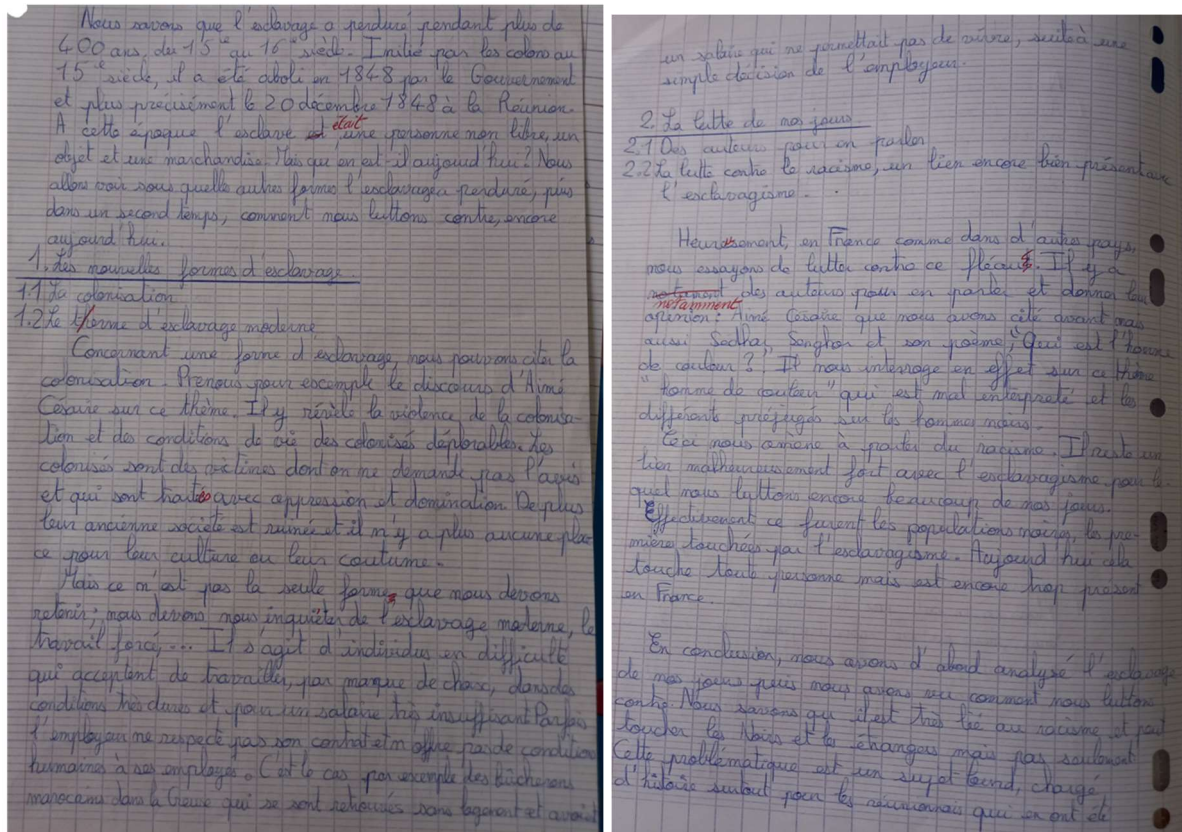 Nous savons que l'esclavage a perduré pendant plus de
400 ans, du 15e au 16e siècle. Initié par les colons au
15e siècle, il a été aboli en 1848 par le Gouvernement
et plus précisément le 20 décembre 1848 à la Réunion.
A cette époque l'esclave est était une personne non libre, un
objet et une marchandise. Mais qu'en est-il aujourd'hui? Nous
allons voir sous quelle autres formes l'esclavage a perduré, puis
dans un second temps, comment nous luttons contre, encore
aujourd'hui.
1. Les nouvelles formes d'esclavage
1.1 La colonisation
1.2 Le terme d'esclavage moderne
Concernant une forme d'esclavage, nous pouvons citer la
colonisation. Prenons pour exemple le discours d'Aimé
Césaire sur ce thème. Il y révèle la violence de la colonisa-
tion et des conditions de vie des colonisés déplorables. Les
colonisés sont des victimes dont on ne demande pas l'avis
et qui sont traités avec oppression et domination. De plus
leur ancienne société est ruinée et il n'y a plus aucune pla-
ce pour leur culture ou leur coutume.
Mais ce n'est pas la seule forme que nous devons
retenir; nous devons nous inquiéter de l'esclavage moderne, le
travail forcé, ... Il s'agit d'individus en difficulté
qui acceptent de travailler, par manque de choix, dans des
conditions très dures et pour un salaire très insuffisant. Parfois
l'employeur ne respecte pas son contrat et n'offre pas de condition
humaines à ses employés. C'est le cas par exemple des bûcherons
marocains dans la Creuse qui se sont retrouvés sans logement et avaient
un salaire qui ne permettait pas de vivre, suite à une
simple décision de l'employeur.
2. La lutte de nos jours
2.1 Des auteurs pour en parler
2.2 La lutte contre le racisme, un lien encore bien présent avec
l'esclavagisme.
Heureusement, en France comme dans d'autres pays,
nous essayons de lutter contre ce fléau. Il y a
notamment des auteurs pour en parler et donner leur
: Aimé Césaire que nous avons cité avant mais
aussi Sedhar Senghor et son poème, "Qui est l'homme
de couleur?". Il nous interroge en effet sur ce thème
"homme de couleur" qui est mal interprété et les
différents préjugés sur les hommes noirs.
Ceci nous amène à parler du racisme. Il reste un
lien malheureusement fort avec l'esclavagisme pour le-
quel nous luttons encore beaucoup de nos jours.
Effectivement ce furent les populations noires, les pre-
mière touchées par l'esclavagisme. Aujourd'hui cela
touche toute personne mais est encore trop présent
en France.
En conclusion, nous avons d'abord analysé l'esclavage
de nos jours puis nous avons vu comment nous luttons
contre. Nous savons qu'il est très lié au racisme et peut
toucher les Noirs et les étrangers mais pas seulement
Cette problématique est un sujet lourd, chargé
d'histoire surtout pour les réunionnais qui en ont été